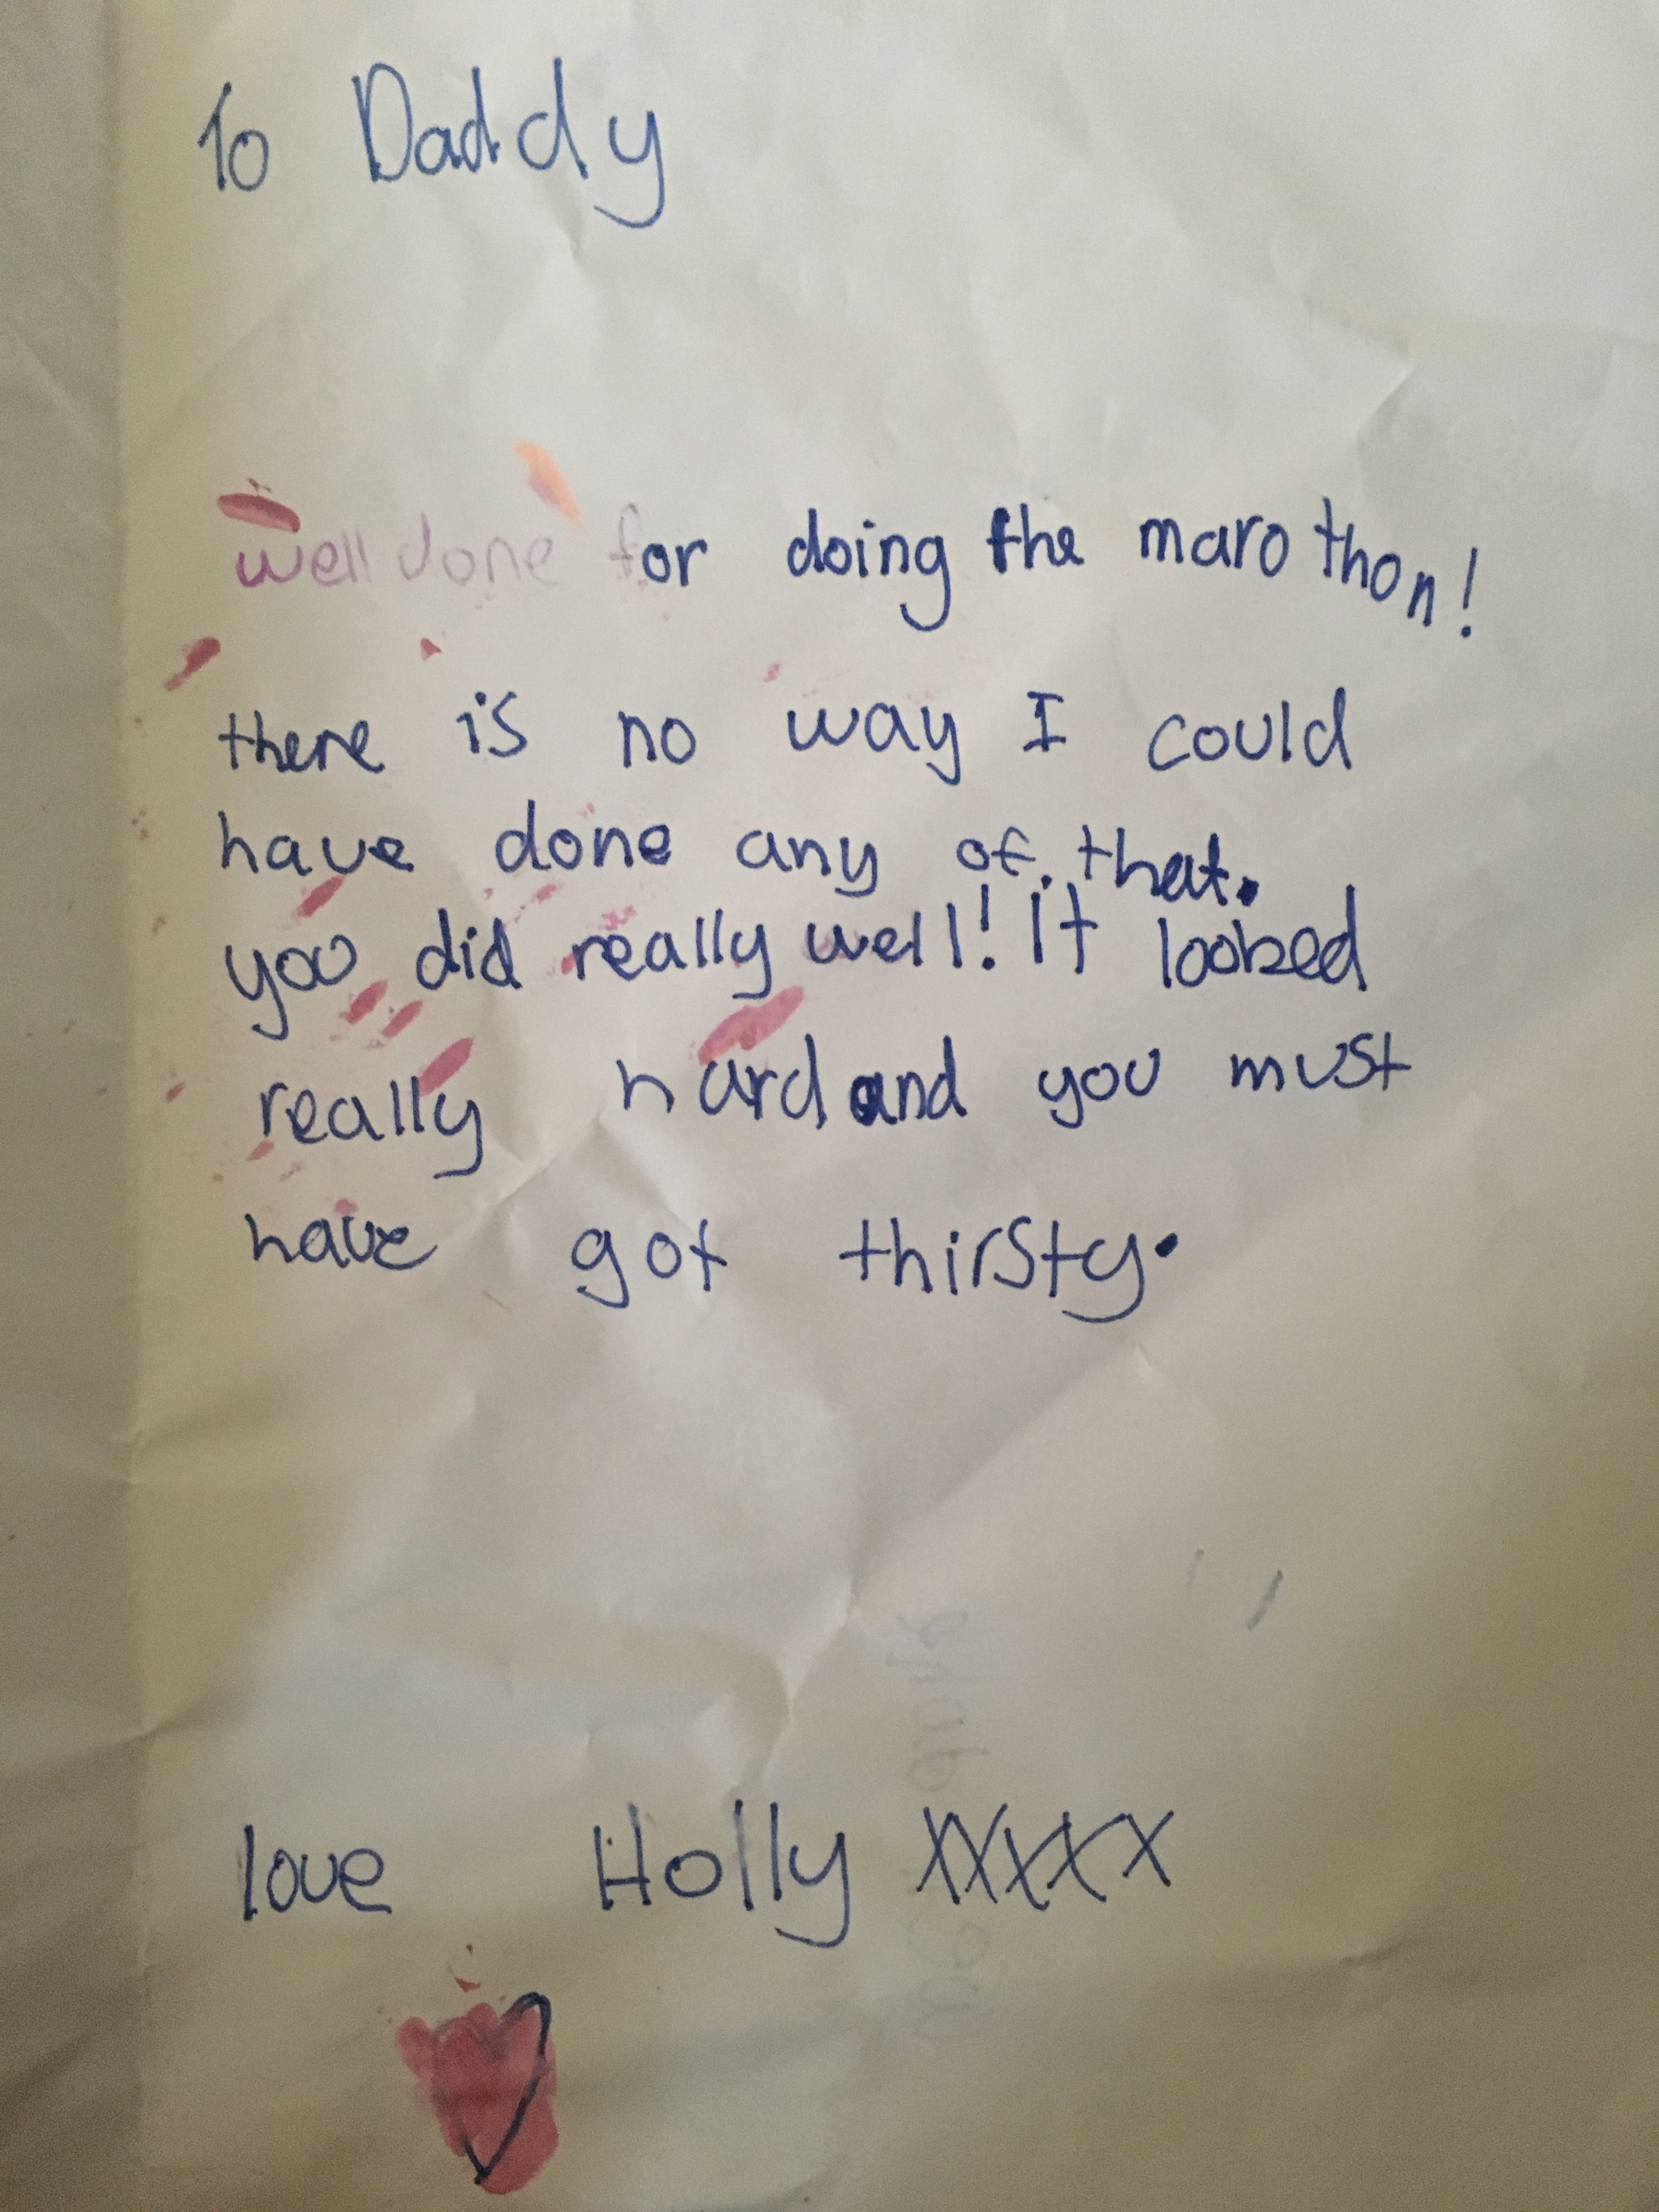 To Daddy
well done for doing the marothon!
there is no way I could
have done any of. that.
you did really well! It looked
really hard and you must
have got thirsty.
love Holly xxxxx